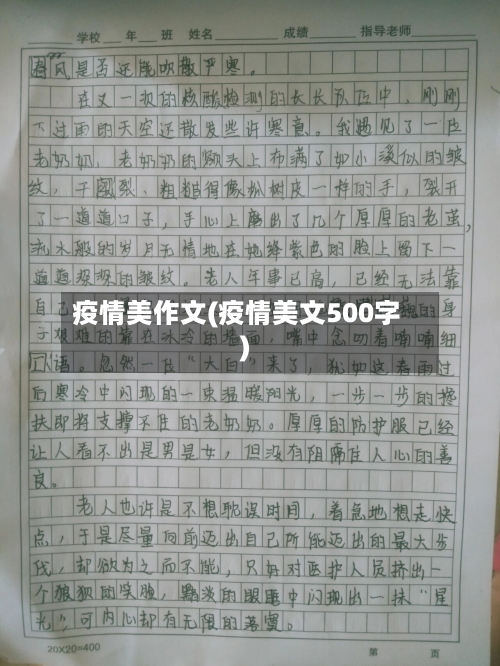 学校 年 班 姓名 成绩 指导老师
春风是否还能吹散严寒。
在又一次的核酸检测的长长队伍中，刚刚
下过雨的天空还散发些许寒意。我遇见了一位
老奶奶，老奶奶的额头上布满了如小溪似的皱
纹，干裂、粗糙得像松树皮一样的手，裂开
了一道道口子，手心上磨出了几个厚厚的老茧，
流水般的岁月无情地在她绛紫色的脸上留下一
道道深深的皱纹。老人年事已高，已经无法靠
自己
疫情美作文(疫情美文500字
)
子艰难的靠在冰冷的墙面，嘴中念叨着喃喃细
语。忽然一位“大白”来了，犹如这春雨过
后寒冷中闪现的一束温暖阳光，一步一步的搀
扶即将支撑不住的老奶奶。厚厚的防护服已经
让人看不出是男是女，但没有阻隔住人心的善
良。
老人也许是不想耽误时间，着急地想走快
点，于是尽量向前迈出自己所能迈出的最大步
伐，却欲为之而不能，只好对医护人员挤出一
个狼狈的笑脸，黯淡的眼眶中闪现出一抹“星
光”，可内心却有无限的落寞。
20X20=400 第 页